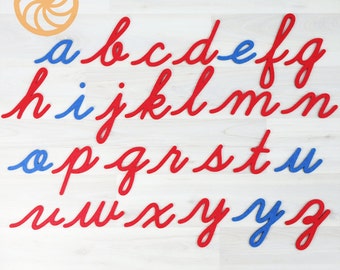 a b c d e f g
h i j k l m n
o p q r s t u
v w x y y z